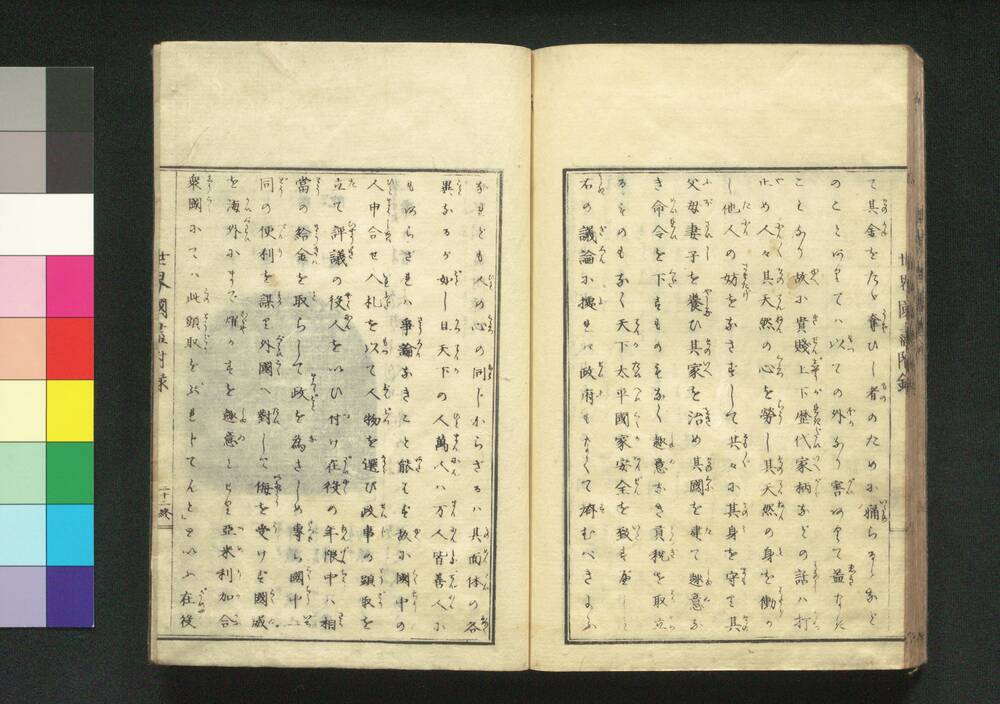 て其金をたゝ奪ひし者のために痛らるゝなど
のことありては以ての外なり害ありて益なき
ことなり故に貴賤上下歴代家柄などの話ハ打
止め人々其天然の心を勞し其天然の身を働か
し他人の妨をなさずして共々に其身を守り其
父母妻子を養ひ其家を治め其國を建て趣意な
き命令を下すものもなく趣意なき貢税を取立
るものもなく天下太平國家安全を致すべし
右の議論に據れハ政府もなくて済むべきよふ
世界國盡附録
なれども人の心の同じからざるハ其面体の各
異なるが如し日天下の人萬人ハ万人皆善人に
もあらざれハ爭論なきこと能ハず故に國中の
人申合せ入札を以て人物を選び政事の頭取を
立て評議の役人をいひ付け在役の年限中ハ相
當の給金を取らして政を為さしめ専ら國中一
同の便利を謀り外國へ對して侮を受けず國威
を海外にまで燿かすを趣意とせり亞米利加合
衆國にてハ此頭取をぷれじでんと」といふ在役
世界國盡附録
二十二